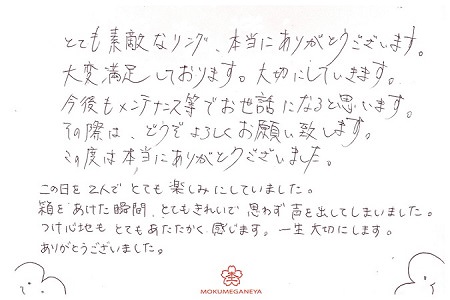 とても素敵なリング、本当にありがとうございます。
大変満足しております。大切にしていきます。
今後もメンテナンス等でお世話になると思います。
その際は、どうぞよろしくお願い致します。
この度は本当にありがとうございました。
この日を2人でとても楽しみにしていました。
箱をあけた瞬間、とてもきれいで思わず声を出してしまいました。
つけ心地もとてもあたたかく感じます。一生大切にします。
ありがとうございました。
MOKUMEGANEYA